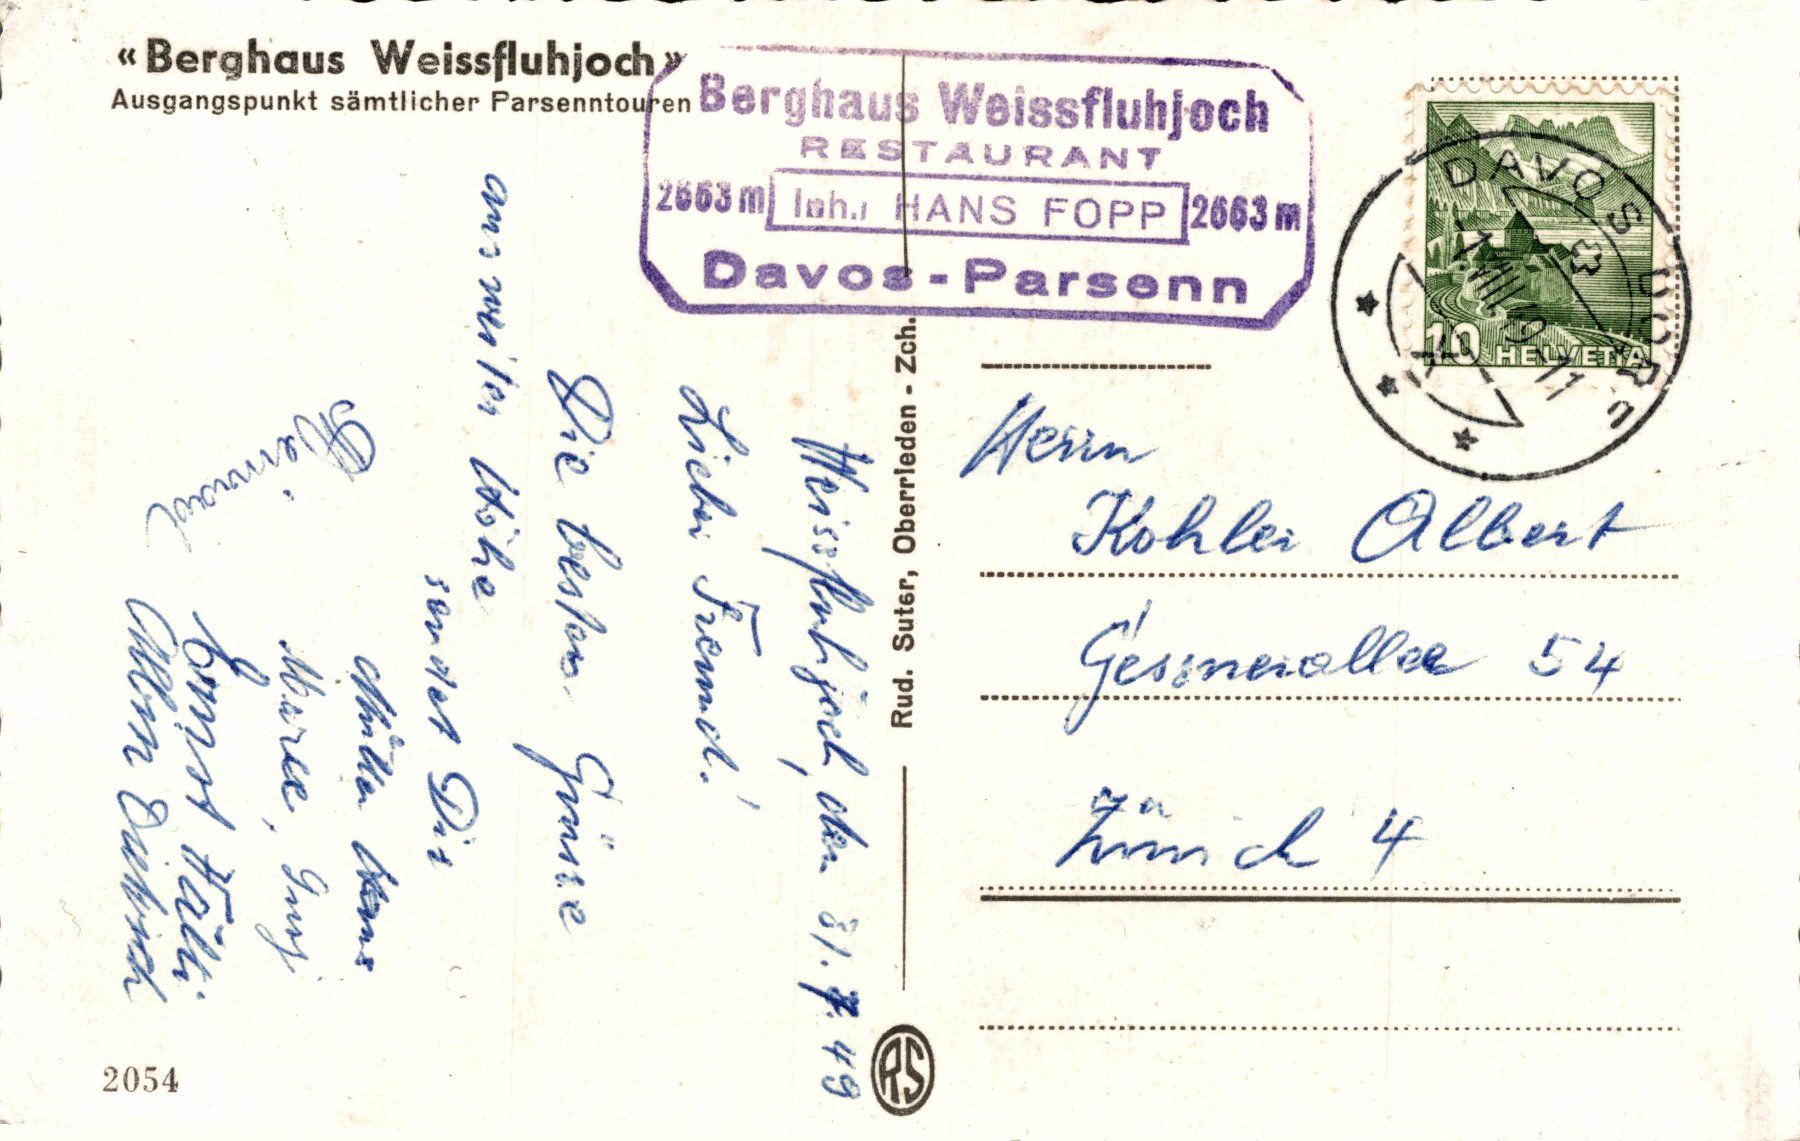 «Berghaus Weissfluhjoch»
Ausgangspunkt sämtlicher Parsenntouren
Berghaus Weissfluhjoch
RESTAURANT
2663 m Inh.: HANS FOPP 2663 m
Davos-Parsenn
DAVOS DORF
-1.VIII.49-11
10 HELVETIA
Weissfluhjoch, den 31.7.49
Lieber Freund!
Die besten Grüsse
aus weiter Höhe
sendet Dir
Müller Hans
Ernst Hälli
Albin
Rud. Suter, Oberrieden - Zch.
RS
Herrn
Kohler Albert
Gessnerallee 54
Zürich 4
2054